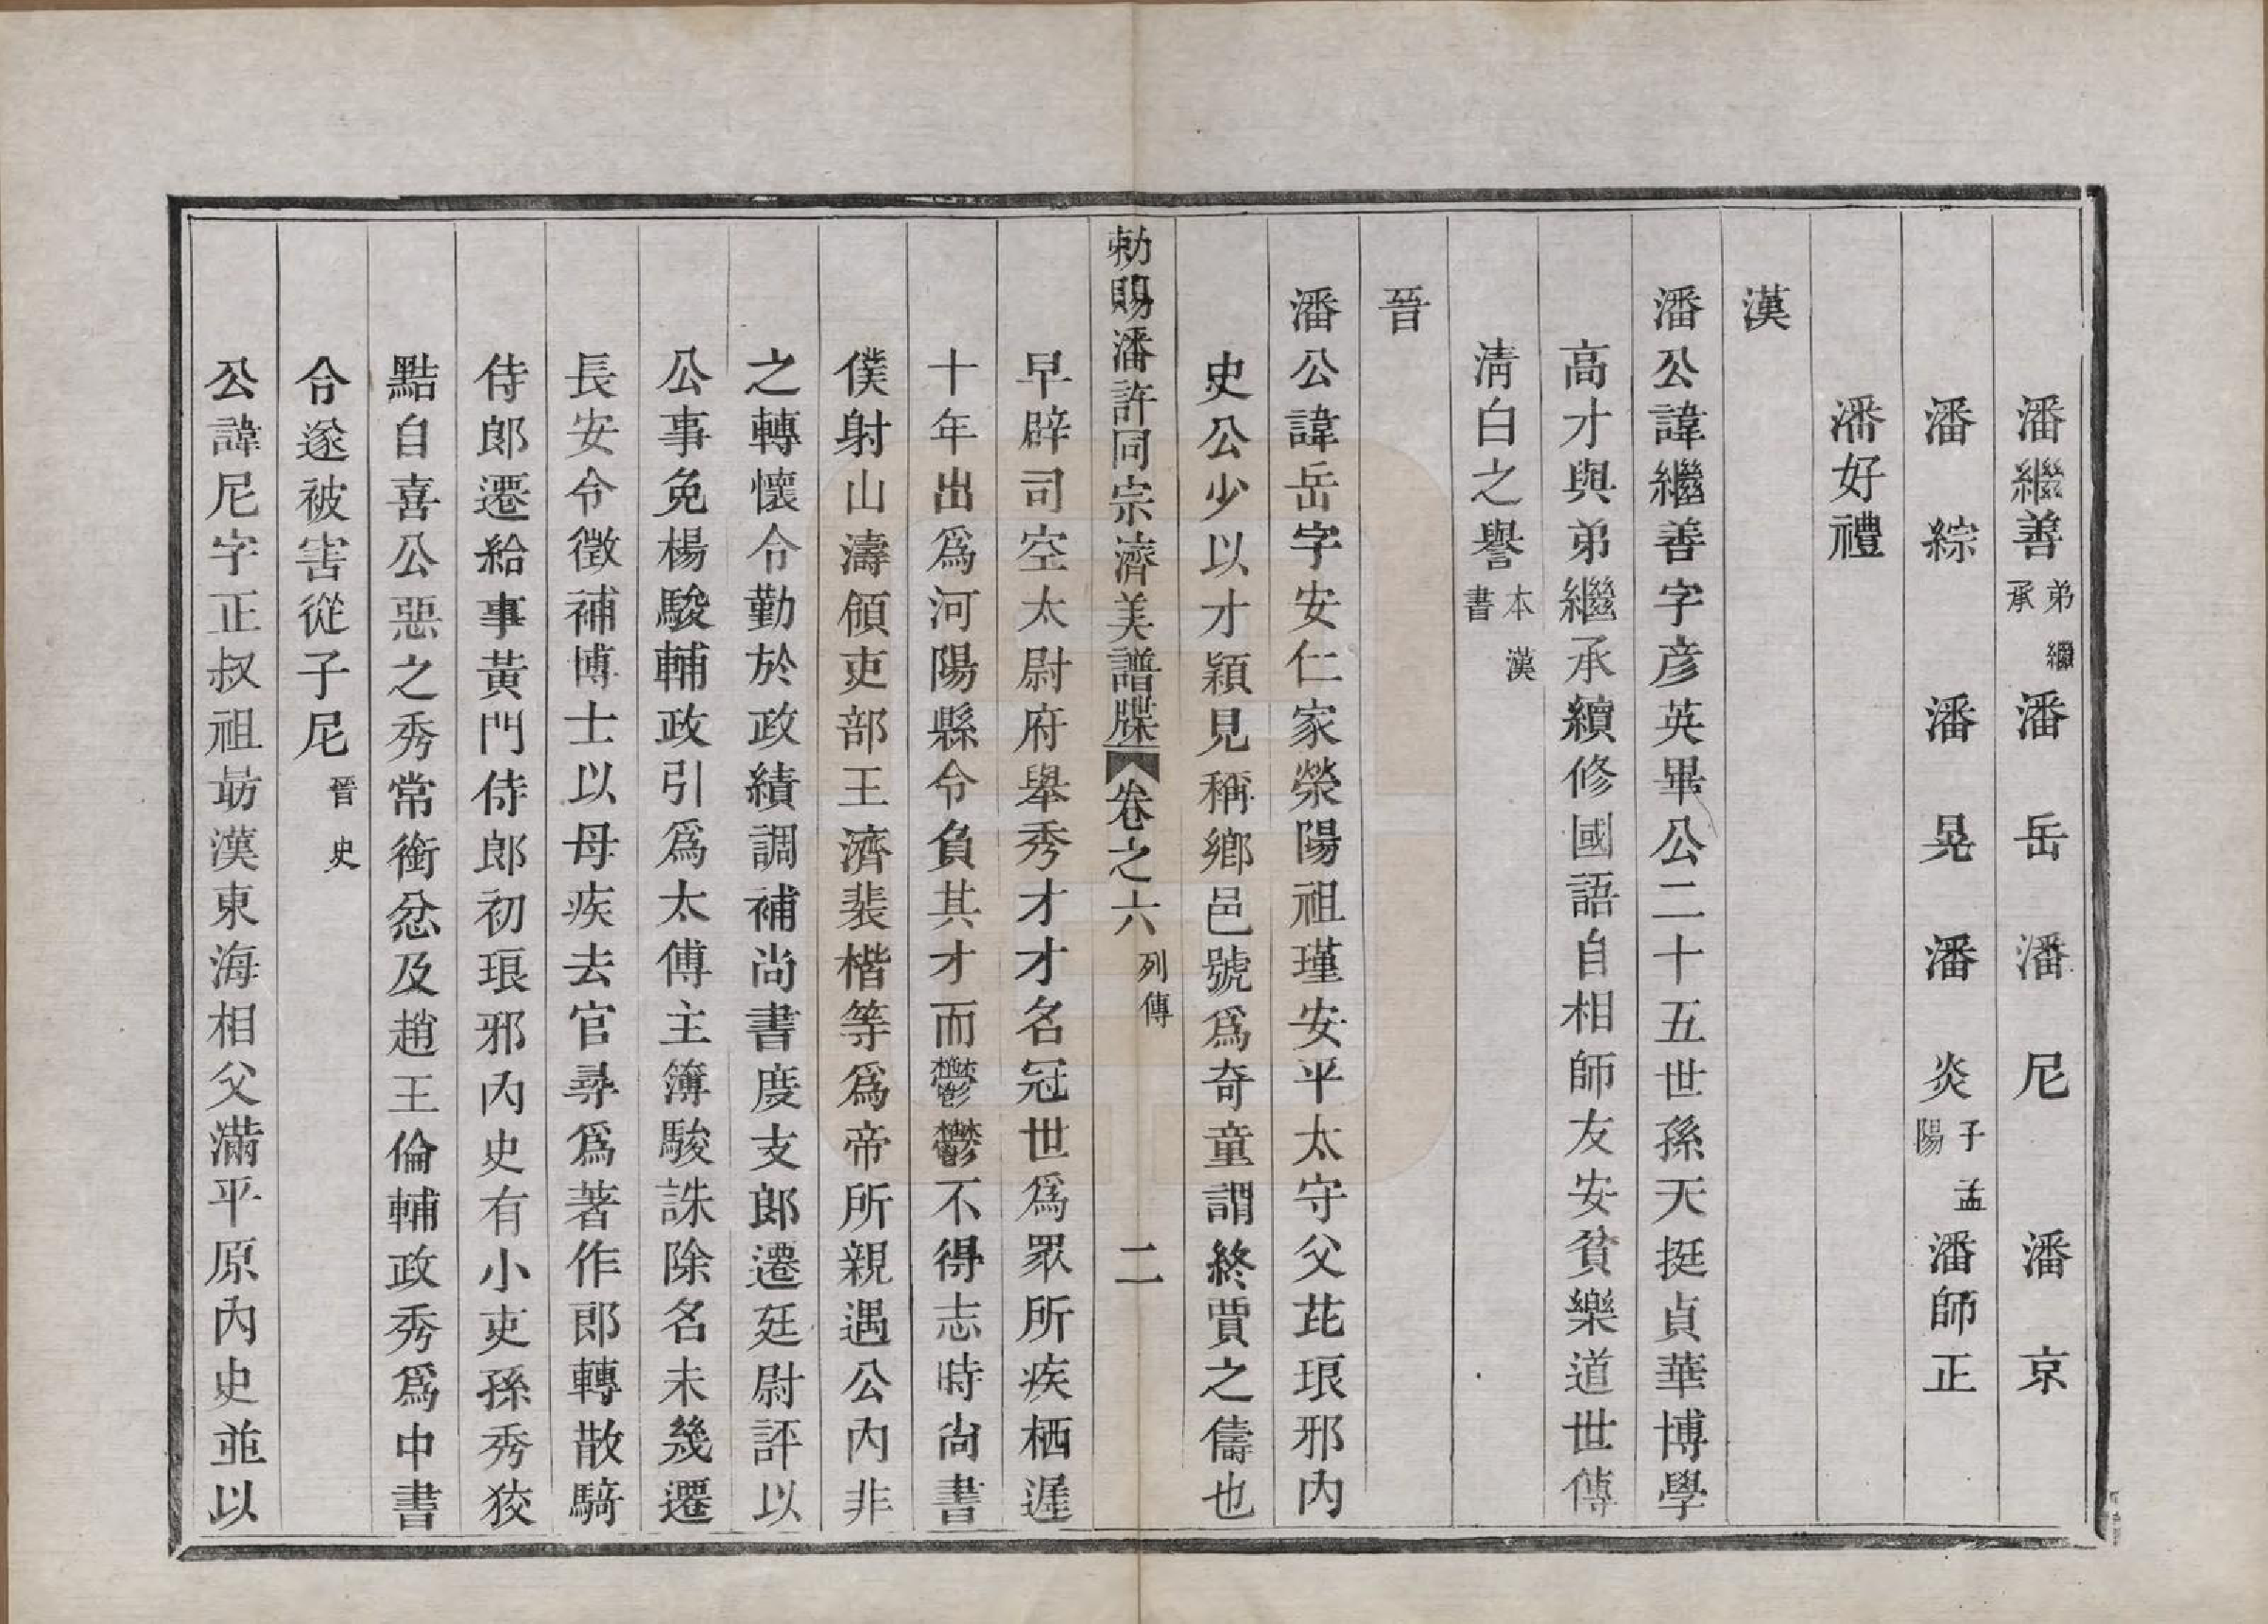 潘繼善弟繼承 潘岳 潘尼 潘京
潘綜 潘晃 潘炎子孟陽 潘師正
潘好禮
漢
潘公諱繼善字彦英畢公二十五世孫天挺貞華博學
高才與弟繼承續修國語自相師友安貧樂道世傳
淸白之譽本漢書
晉
潘公諱岳字安仁家滎陽祖瑾安平太守父芘琅邪内
史公少以才穎見稱鄉邑號爲奇童謂終賈之儔也
勅賜潘許同宗濟美譜牒 卷之六 列傳 二
早辟司空太尉府舉秀才才名冠世爲眾所疾栖遲
十年出爲河陽縣令負其才而鬱鬱不得志時尙書
僕射山濤領吏部王濟裴楷等爲帝所親遇公內非
之轉懷令勤於政績調補尚書度支郎遷廷尉評以
公事免楊駿輔政引爲太傅主簿駿誅除名未幾遷
長安令徵補博士以母疾去官尋爲著作郎轉散騎
侍郎遷給事黃門侍郎初琅邪內史有小吏孫秀狡
黠自喜公惡之秀常銜忿及趙王倫輔政秀爲中書
令遂被害從子尼晉史
公諱尼字正叔祖勗漢東海相父滿平原內史並以